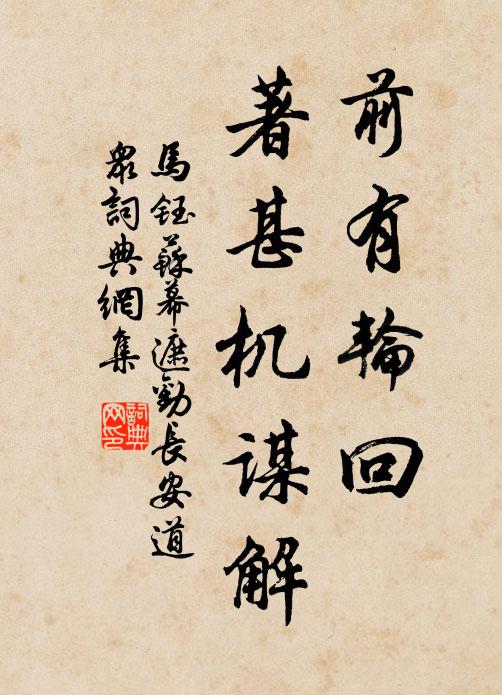 前有輪回
著甚机謀解
馬鈺蘇幕遮勸長安道
眾詞典網集
詞典
网印